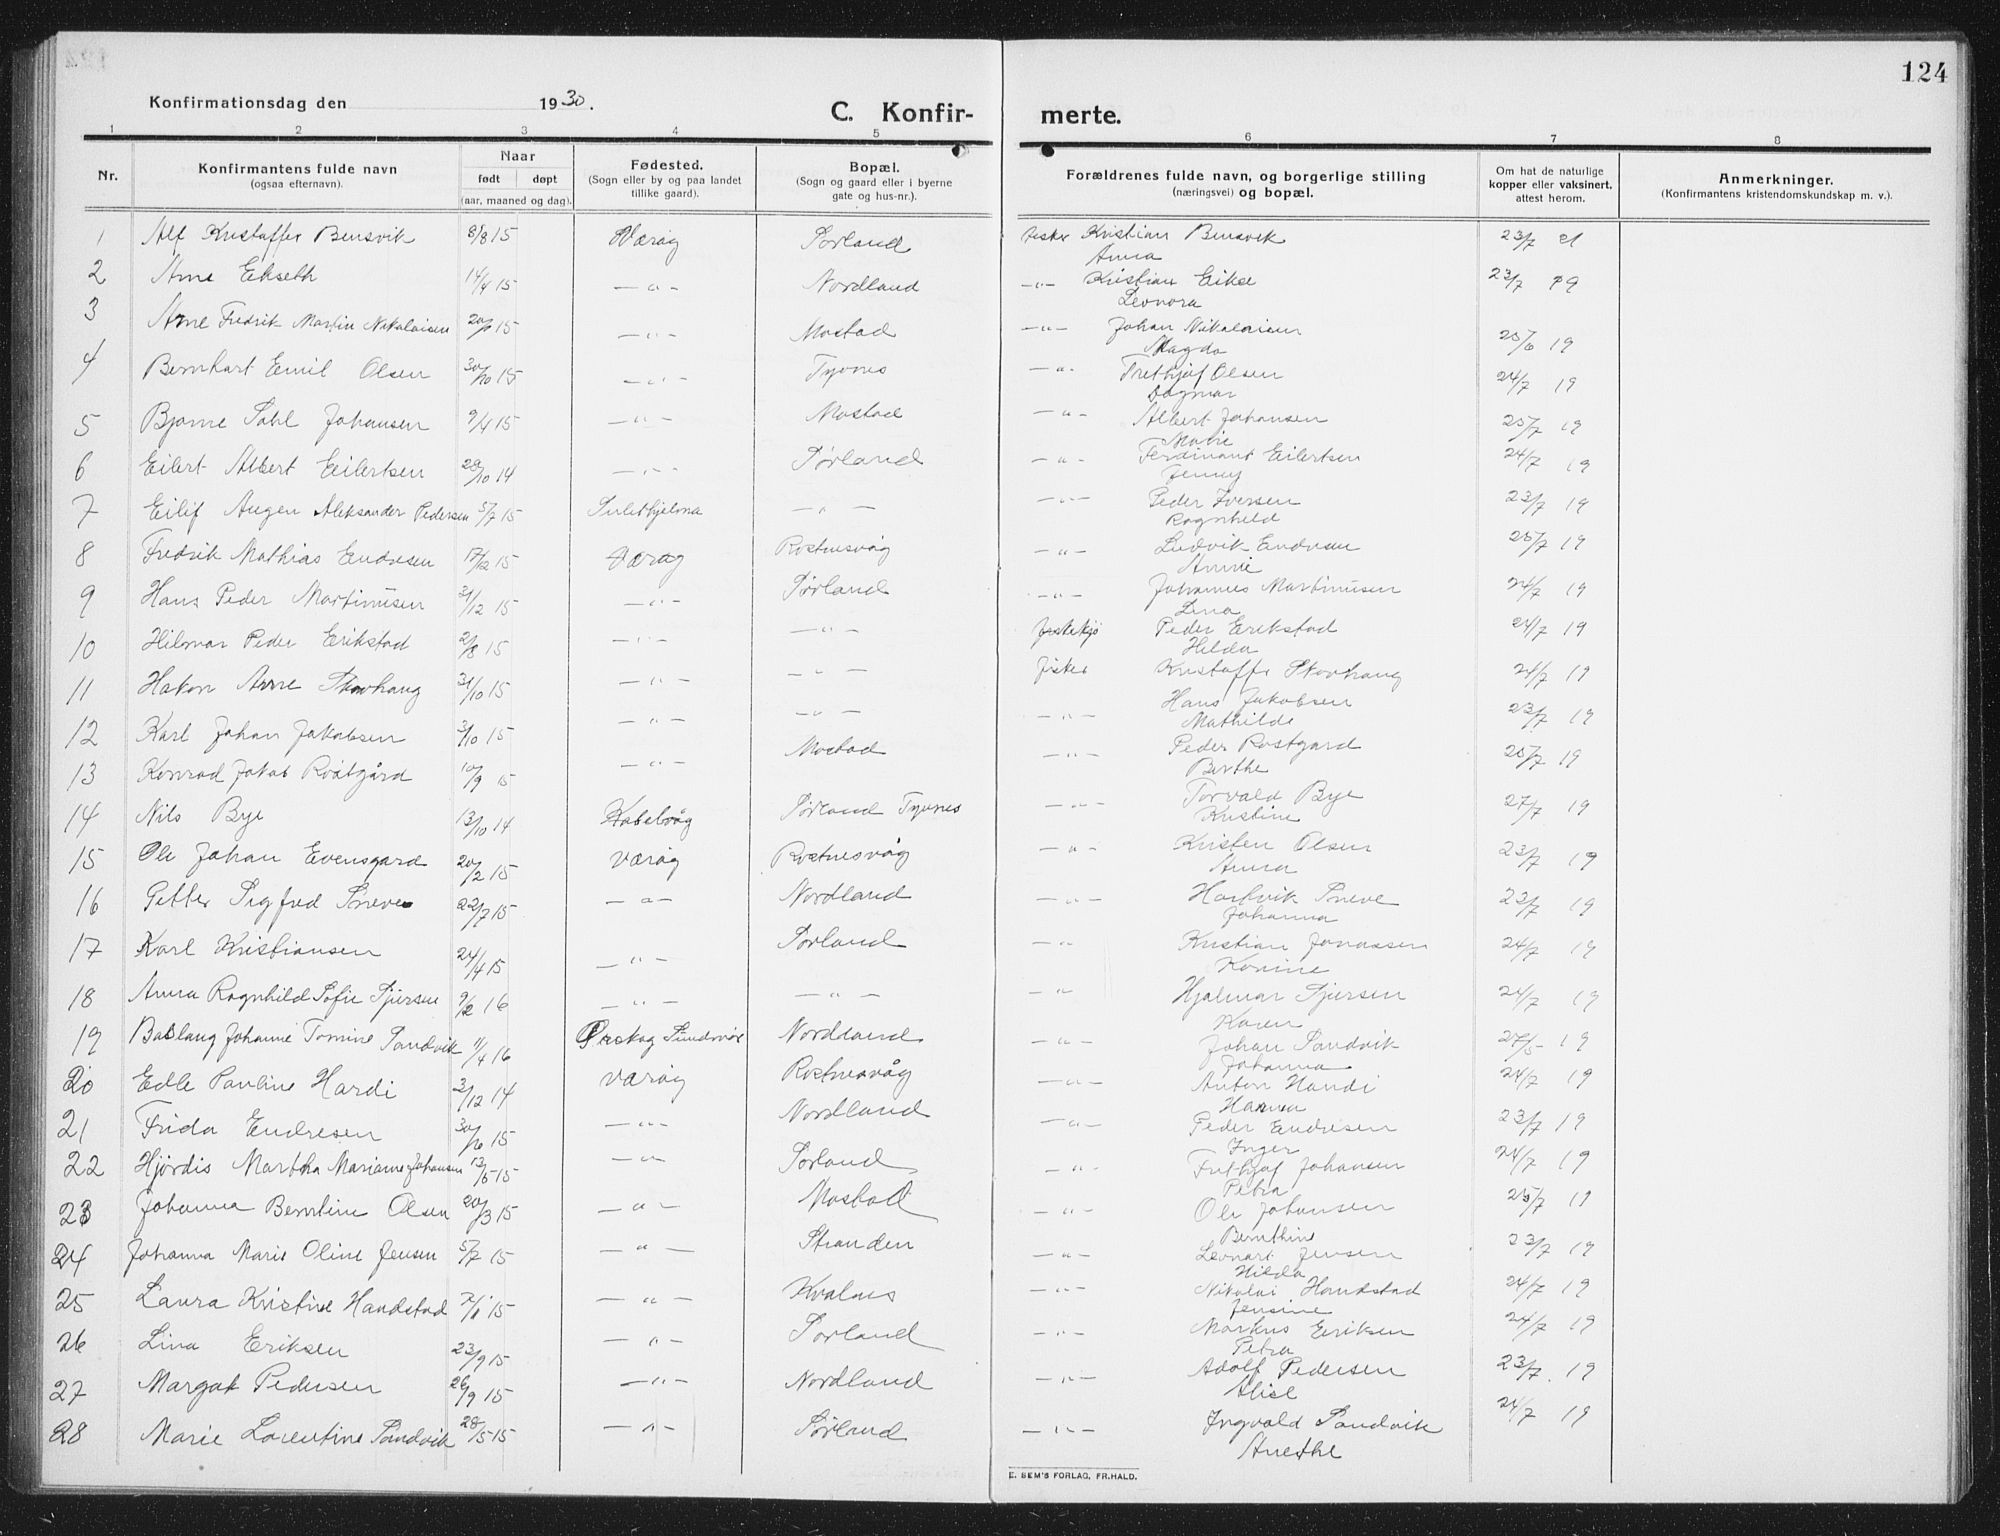 124
Konfirmationsdag den 1930.
C. Konfir-
merte.
1 2 3 4 5 6 7 8
Nr.
Konfirmantens fulde navn
(ogsaa efternavn).
Naar
født døpt
(aar, maaned og dag).
Fødested.
(Sogn eller by og paa landet
tillike gaard).
Bopæl.
(Sogn og gaard eller i byerne
gate og hus-nr.).
Forældrenes fulde navn, og borgerlige stilling
(næringsvei) og bopæl.
Om hat de naturlige
kopper eller vaksinert,
attest herom.
Anmerkninger.
(Konfirmantens kristendomskundskap m. v.).
1 Alf Kristoffer Bensvik 8/8 15 Værøg Sørland Fisker Kristian Bensvik 23/7 21
Anna
2 Arne Ekseth 14/4 15 —"— Nordland —"— Kristian Eikse 23/7 19
Leonora
3 Arne Fredrik Martin Nikolaisen 15 —"— Mostad —"— Johan Nikolaisen 25/6 19
Magda
4 Bernhart Emil Olsen 30/10 15 —"— Tyvnes —"— Frethjof Olsen 24/7 19
Dagmar
5 Bjarne Dahl Johansen 9/4 15 —"— Mostad —"— Albert Johansen 25/7 19
Marie
6 Eilert Albert Eilertsen 28/10 14 —"— Sørland —"— Ferdinant Eilertsen 24/7 19
Jenny
7 Eilif Augen Aleksander Pedersen 5/7 15 Sulithjelma —"— —"— Peder Iversen 23/7 19
Ragnhild
8 Fredrik Mathias Endresen 17/12 15 Værøg Røstnesvåg —"— Ludvik Endresen 25/7 19
Annie
9 Hans Peder Martinusen 31/12 15 —"— Sørland —"— Johannes Martinusen 24/7 19
Lina
10 Hilmar Peder Erikstad 2/8 15 —"— —"— Peder Erikstad 24/7 19
Hilda
11 Håkon Arne Skovhaug 31/10 15 —"— —"— Fisker Kristoffe Skovhaug 24/7 19
12 Karl Johan Jakobsen 3/10 15 —"— —"— —"— Hans Jakobsen 23/7 19
Mathilde
13 Konrad Jakob Rostgård 10/9 15 —"— Mostad —"— Peder Rostgard 25/7 19
Berthe
14 Nils Bye 13/10 14 Kabelvåg Sørland Tyvnes —"— Torvald Bye 27/7 19
Kristine
15 Ole Johan Evensgard 20/2 15 Værøg Røstnesvåg —"— Kristen Olsen 23/7 19
Anna
16 Petter Sigfred Sneve 22/7 15 —"— Nordland —"— Hartvik Sneve 23/7 19
Johanna
17 Karl Kristiansen 24/4 15 —"— Sørland —"— Kristian Jonassen 24/7 19
Konine
18 Anna Ragnhild Sofie Sjursen 9/2 16 —"— —"— —"— Hjalmar Sjursen 24/7 19
Karen
19 Johanne Tomine Sandvik 11/4 16 Ørskog Sundmør Nordland —"— Johan Sandvik 27/5 19
Johanna
20 Edle Pauline Hardi 3/12 14 Værøg Røstnesvåg —"— Anton Handi 24/7 19
Hanna
21 Frida Endresen 30/10 15 —"— Nordland —"— Peder Endresen 23/7 19
Inger
22 Hjørdis Martha Marianne Johansen 13/5 15 —"— Sørland —"— Frithjof Johansen 24/7 19
Petra
23 Johanna Berntine Olsen 20/3 15 —"— Mostad —"— Ole Johansen 25/7 19
Bernthine
24 Johanna Marie Oline Jensen 5/7 15 —"— Stranden —"— Leonart Jensen 23/7 19
Hilda
25 Laura Kristine Handstad 7/1 15 —"— Kvalnes —"— Nikolai Handstad 24/7 19
Jensine
26 Lina Eriksen 23/9 15 —"— Sørland —"— Markus Eriksen 24/7 19
Petra
27 Margot Pedersen 26/9 15 —"— Nordland —"— Adolf Pedersen 23/7 19
Alise
28 Marie Lorentine Sandvik 28/5 15 —"— Sørland —"— Ingvald Sandvik 24/7 19
Anethe
E. SEM'S FORLAG, FR.HALD.